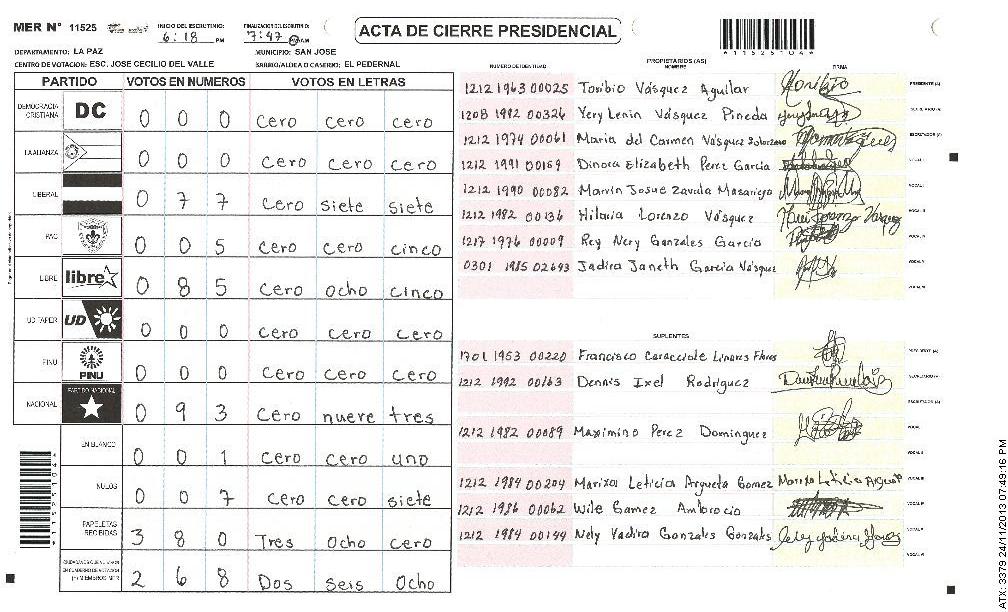 MER N° 11525
INICIO DEL ESCRUTINIO: 6:18 PM
FINALIZACION DEL ESCRUTINIO: 7:47 AM
ACTA DE CIERRE PRESIDENCIAL
*1152510 4*
DEPARTAMENTO: LA PAZ
MUNICIPIO: SAN JOSE
CENTRO DE VOTACION: ESC. JOSE CECILIO DEL VALLE
BARRIO/ALDEA O CASERIO: EL PEDERNAL
PARTIDO VOTOS EN NUMEROS VOTOS EN LETRAS
DEMOCRACIA CRISTIANA DC 0 0 0 cero cero cero
LA ALIANZA 0 0 0 cero cero cero
LIBERAL 0 7 7 cero siete siete
PAC 0 0 5 cero cero cinco
LIBRE libre 0 8 5 cero ocho cinco
UD FAPER UD 0 0 0 cero cero cero
PINU PINU 0 0 0 cero cero cero
NACIONAL PARTIDO NACIONAL 0 9 3 cero nueve tres
EN BLANCO 0 0 1 cero cero uno
NULOS 0 0 7 cero cero siete
PAPELETAS RECIBIDAS 3 8 0 Tres ocho cero
2 6 8 Dos seis ocho
PROPIETARIOS (AS)
NUMERO DE IDENTIDAD NOMBRE FIRMA
1212 1963 00025 Toribio Vásquez Aguilar PRESIDENTE (A)
1208 1982 00326 Yery Lenin Vásquez Pineda SECRETARIO (A)
1212 1974 00061 Maria del Carmen Vásquez Solorzano ESCRUTADOR (A)
1212 1991 00169 Dinora Elizabeth Perez Garcia VOCAL I
1212 1990 00082 Marvin Josue Zavala Mazariego VOCAL II
1212 1982 00136 Hilaria Lorenzo Vásquez VOCAL III
1217 1976 00009 Rey Nery Gonzales Garcia VOCAL IV
0301 1985 02693 Jadira Janeth Garcia Vásquez VOCAL V
VOCAL VI
SUPLENTES
1701 1953 00220 Francisco Caracciole Linares Flores PRESIDENTE (A)
1212 1992 00163 Dennis Ixel Rodriguez SECRETARIO (A)
ESCRUTADOR (A)
1212 1982 00089 Maximino Perez Dominguez VOCAL I
VOCAL II
1212 1984 00204 Marixa Leticia Argueta Gomez VOCAL III
1212 1986 00062 Wile Gamez Ambrocio VOCAL IV
1212 1984 00144 Nely Yadira Gonzales Gonzales VOCAL V
VOCAL VI
ATX: 3379 24/11/2013 07:49:16 PM